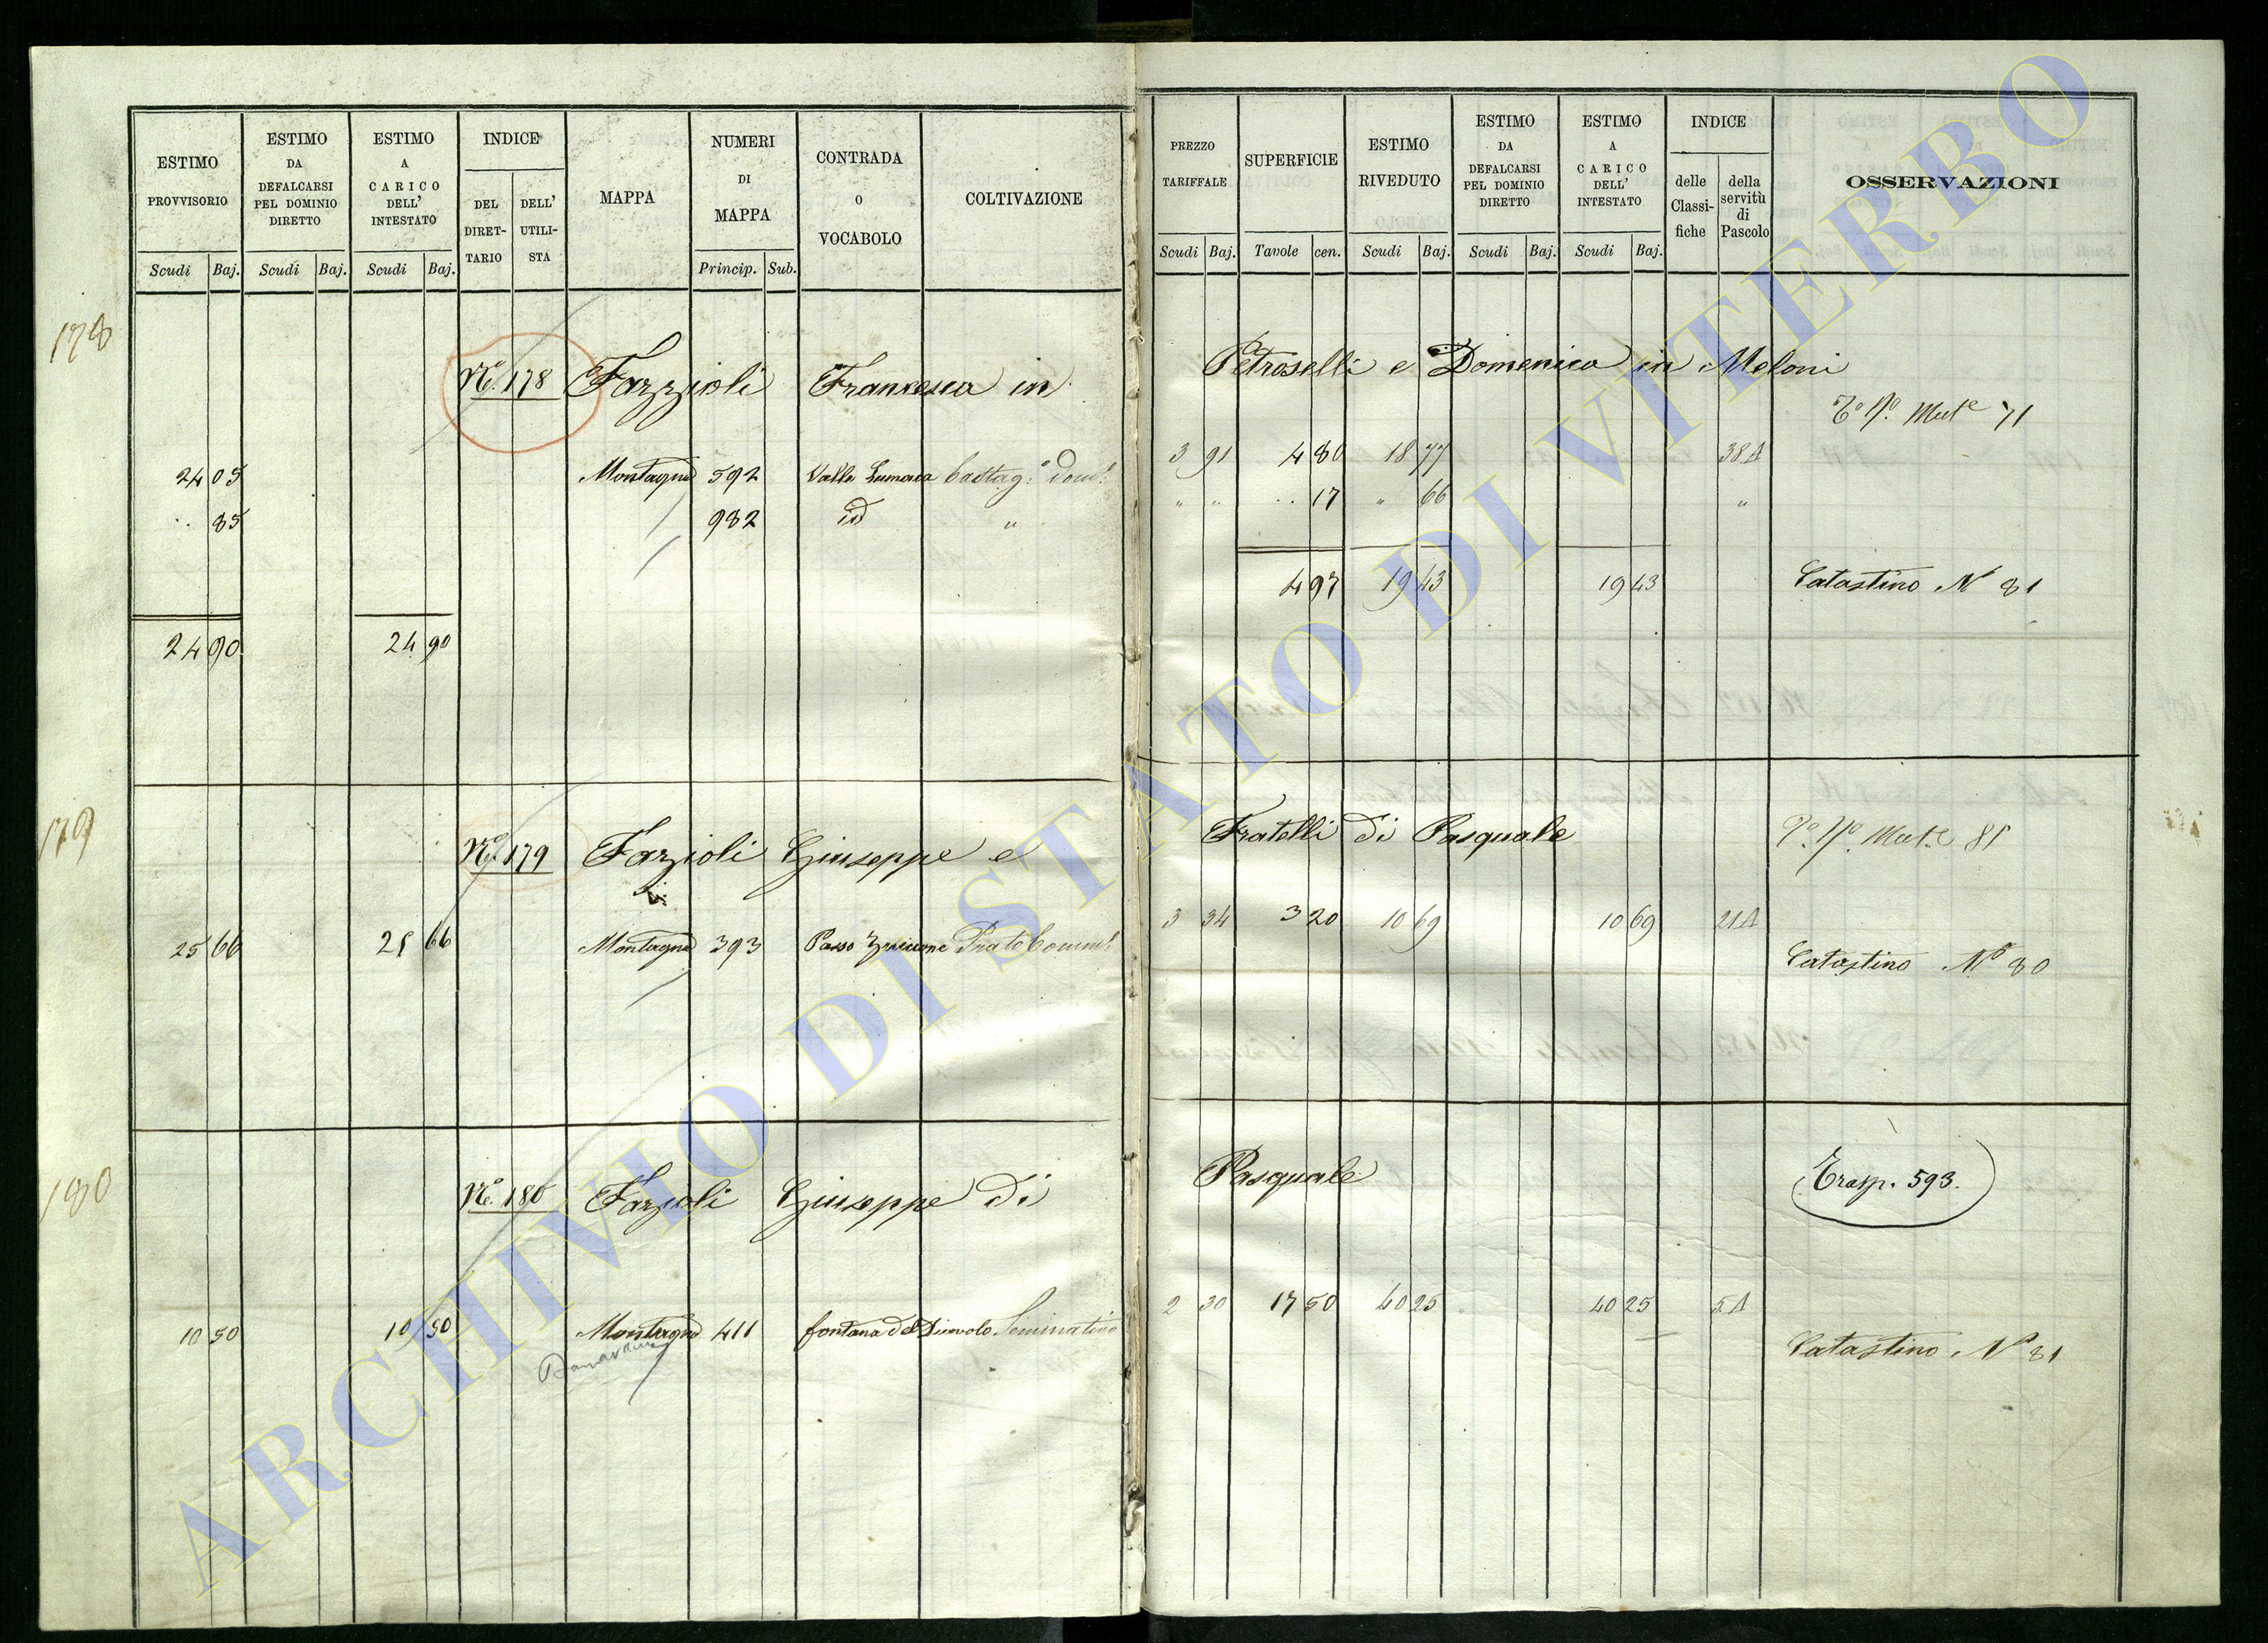 ESTIMO PROVVISORIO Scudi Baj.
ESTIMO DA DEFALCARSI PEL DOMINIO DIRETTO Scudi Baj.
ESTIMO A CARICO DELL' INTESTATO Scudi Baj.
INDICE DEL DIRET-TARIO DELL' UTILI-STA
MAPPA
NUMERI DI MAPPA Princip. Sub.
CONTRADA O VOCABOLO
COLTIVAZIONE
178
Nº. 178 Fazzioli Francesca in
24 05 Montagna 592 Valle Lumaca Castag.º dom.
.. 85 982 id "
24 90 24 90
179
Nº. 179 Fazioli Giuseppe e
25 66 25 66 Montagna 393 Passo Prato
180
Nº. 180 Fazioli Giuseppe di
10 50 10 50 Montagna 411 fontana del Diavolo Seminativo
PREZZO TARIFFALE Scudi Baj.
SUPERFICIE Tavole cen.
ESTIMO RIVEDUTO Scudi Baj.
ESTIMO DA DEFALCARSI PEL DOMINIO DIRETTO Scudi Baj.
ESTIMO A CARICO DELL' INTESTATO Scudi Baj.
INDICE delle Classi-fiche della servitù di Pascolo
OSSERVAZIONI
Petroselli e Domenica in Meloni
Mut.e 71
3 91 4 80 18 77 38A
" " .. 17 " 66 "
4 97 19 43 19 43 Catastino N 81
Fratelli di Pasquale
Mut.e 81
3 34 3 20 10 69 10 69 21A
Catastino Nº 80
Pasquale
Trasp. 593.
2 30 17 50 40 25 40 25 5A
Catastino Nº 81
ARCHIVIO DI STATO DI VITERBO